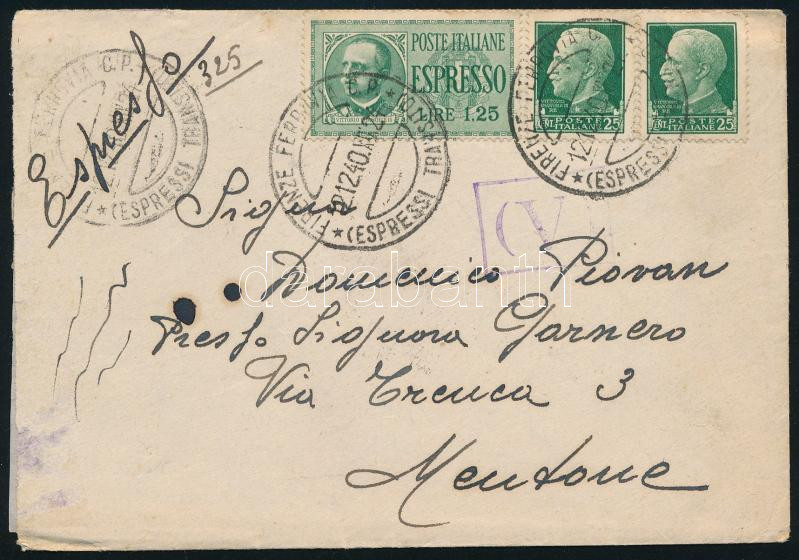 Espresso
325
POSTE ITALIANE
ESPRESSO
LIRE 1.25
VITTORIO
POSTE
ITALIANE
CENT. 25
POSTE
ITALIANE
CENT. 25
FERROVIA C.P.
TRANSITO
(ESPRESSI
FIRENZE FERROVIA C.P. * TRANSITO
12.12.40.XIX
* (ESPRESSI
FIRENZE FERROVIA C.
12.1
* (ESPRESSI
CV
Signor
Domenico Piovan
Presso Signora Garnero
Via Trenca 3
Mentone
darabanth